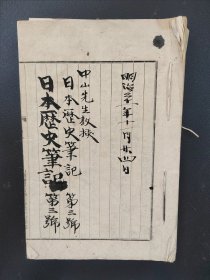 明治三十一年十一月廿四日
中山先生教授
日本歴史筆記 第三號
日本歴史筆記 第三號